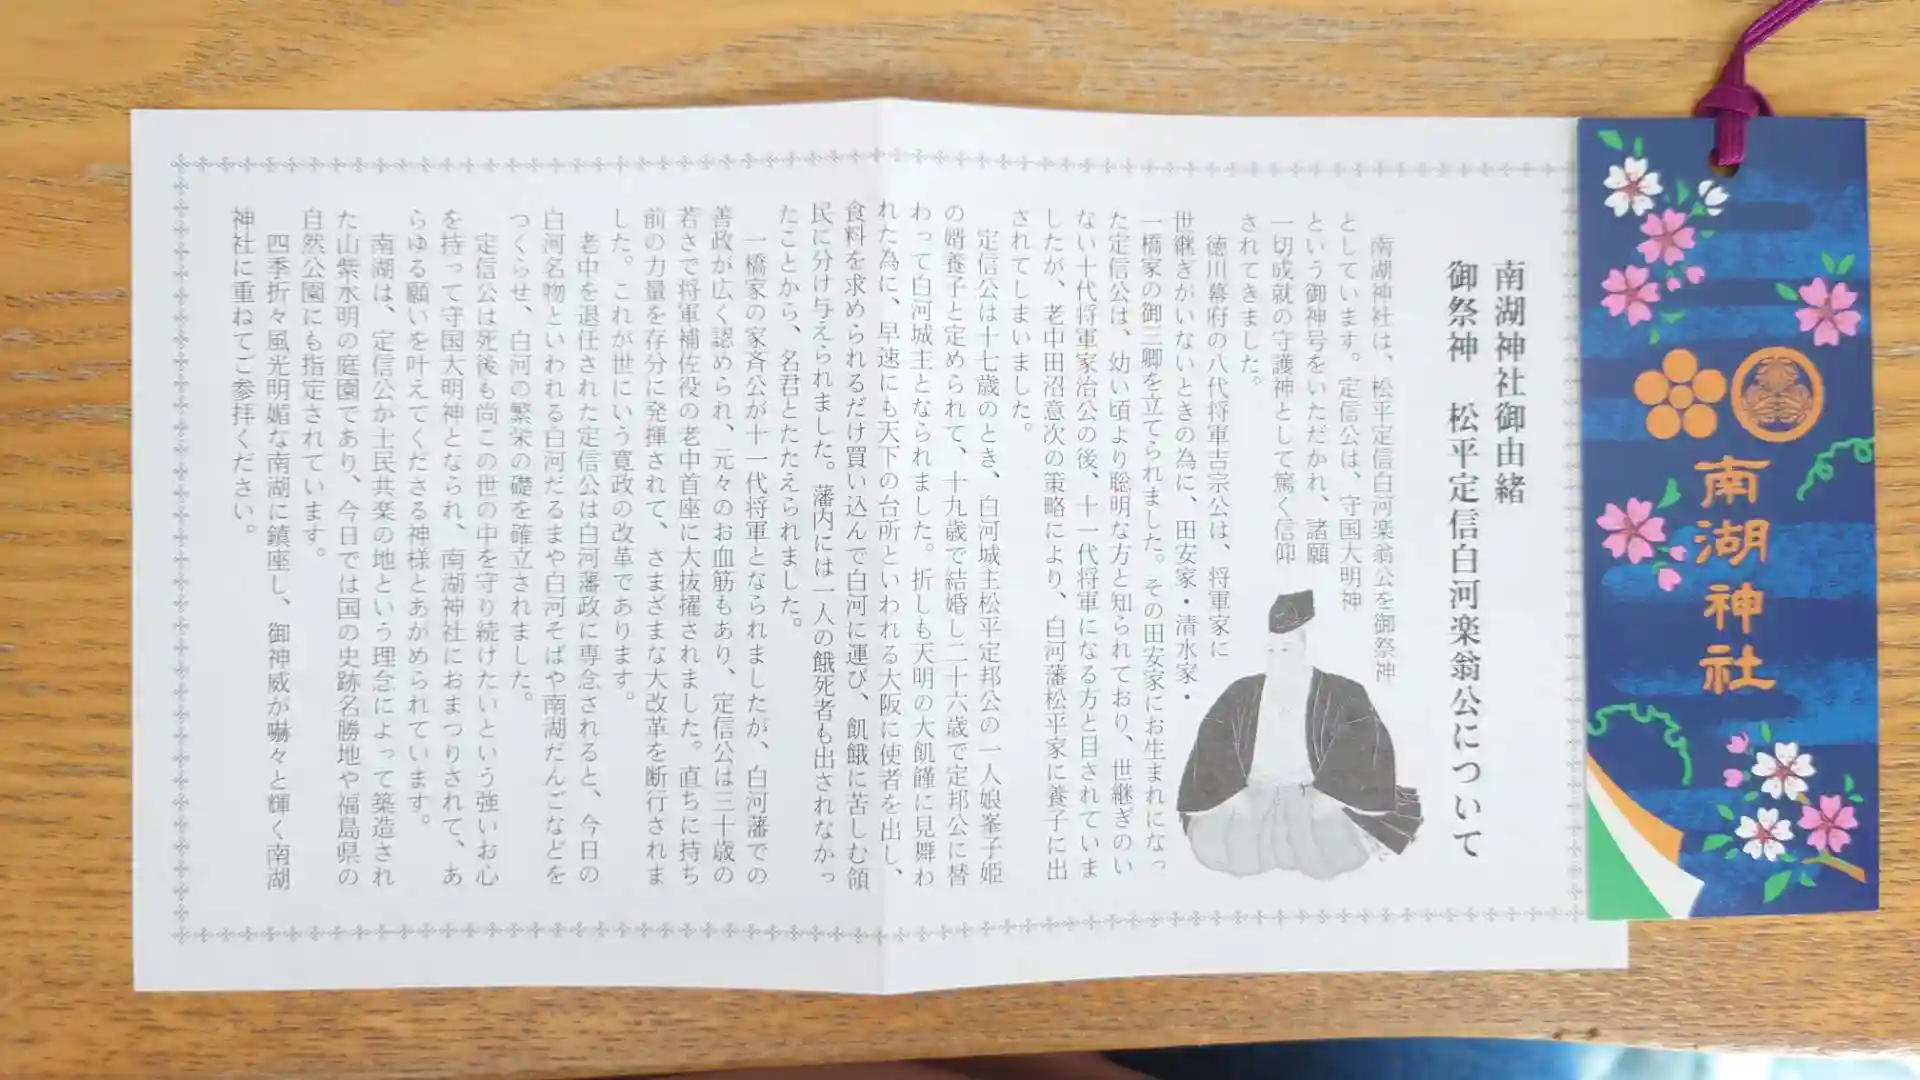 南湖神社
南湖神社御由緒
御祭神 松平定信白河楽翁公について
南湖神社は、松平定信白河楽翁公を御祭神
としています。定信公は、守国大明神
という御神号をいただかれ、諸願
一切成就の守護神として篤く信仰
されてきました。
徳川幕府の八代将軍吉宗公は、将軍家に
世継ぎがいないときの為に、田安家・清水家・
一橋家の御三卿を立てられました。その田安家にお生まれになっ
た定信公は、幼い頃より聡明な方と知られており、世継ぎのい
ない十代将軍家治公の後、十一代将軍になる方と目されていま
したが、老中田沼意次の策略により、白河藩松平家に養子に出
されてしまいました。
定信公は十七歳のとき、白河城主松平定邦公の一人娘峯子姫
の婿養子と定められて、十九歳で結婚し二十六歳で定邦公に替
わって白河城主となられました。折しも天明の大飢饉に見舞わ
れた為に、早速にも天下の台所といわれる大阪に使者を出し、
食料を求められるだけ買い込んで白河に運び、飢餓に苦しむ領
民に分け与えられました。藩内には一人の餓死者も出されなかっ
たことから、名君とたたえられました。
一橋家の家斉公が十一代将軍となられましたが、白河藩での
善政が広く認められ、元々のお血筋もあり、定信公は三十歳の
若さで将軍補佐役の老中首座に大抜擢されました。直ちに持ち
前の力量を存分に発揮されて、さまざまな大改革を断行されま
した。これが世にいう寛政の改革であります。
老中を退任された定信公は白河藩政に専念されると、今日の
白河名物といわれる白河だるまや白河そばや南湖だんごなどを
つくらせ、白河の繁栄の礎を確立されました。
定信公は死後も尚この世の中を守り続けたいという強いお心
を持って守国大明神となられ、南湖神社におまつりされて、あ
らゆる願いを叶えてくださる神様とあがめられています。
南湖は、定信公が士民共楽の地という理念によって築造され
た山紫水明の庭園であり、今日では国の史跡名勝地や福島県の
自然公園にも指定されています。
四季折々風光明媚な南湖に鎮座し、御神威が嚇々と輝く南湖
神社に重ねてご参拝ください。